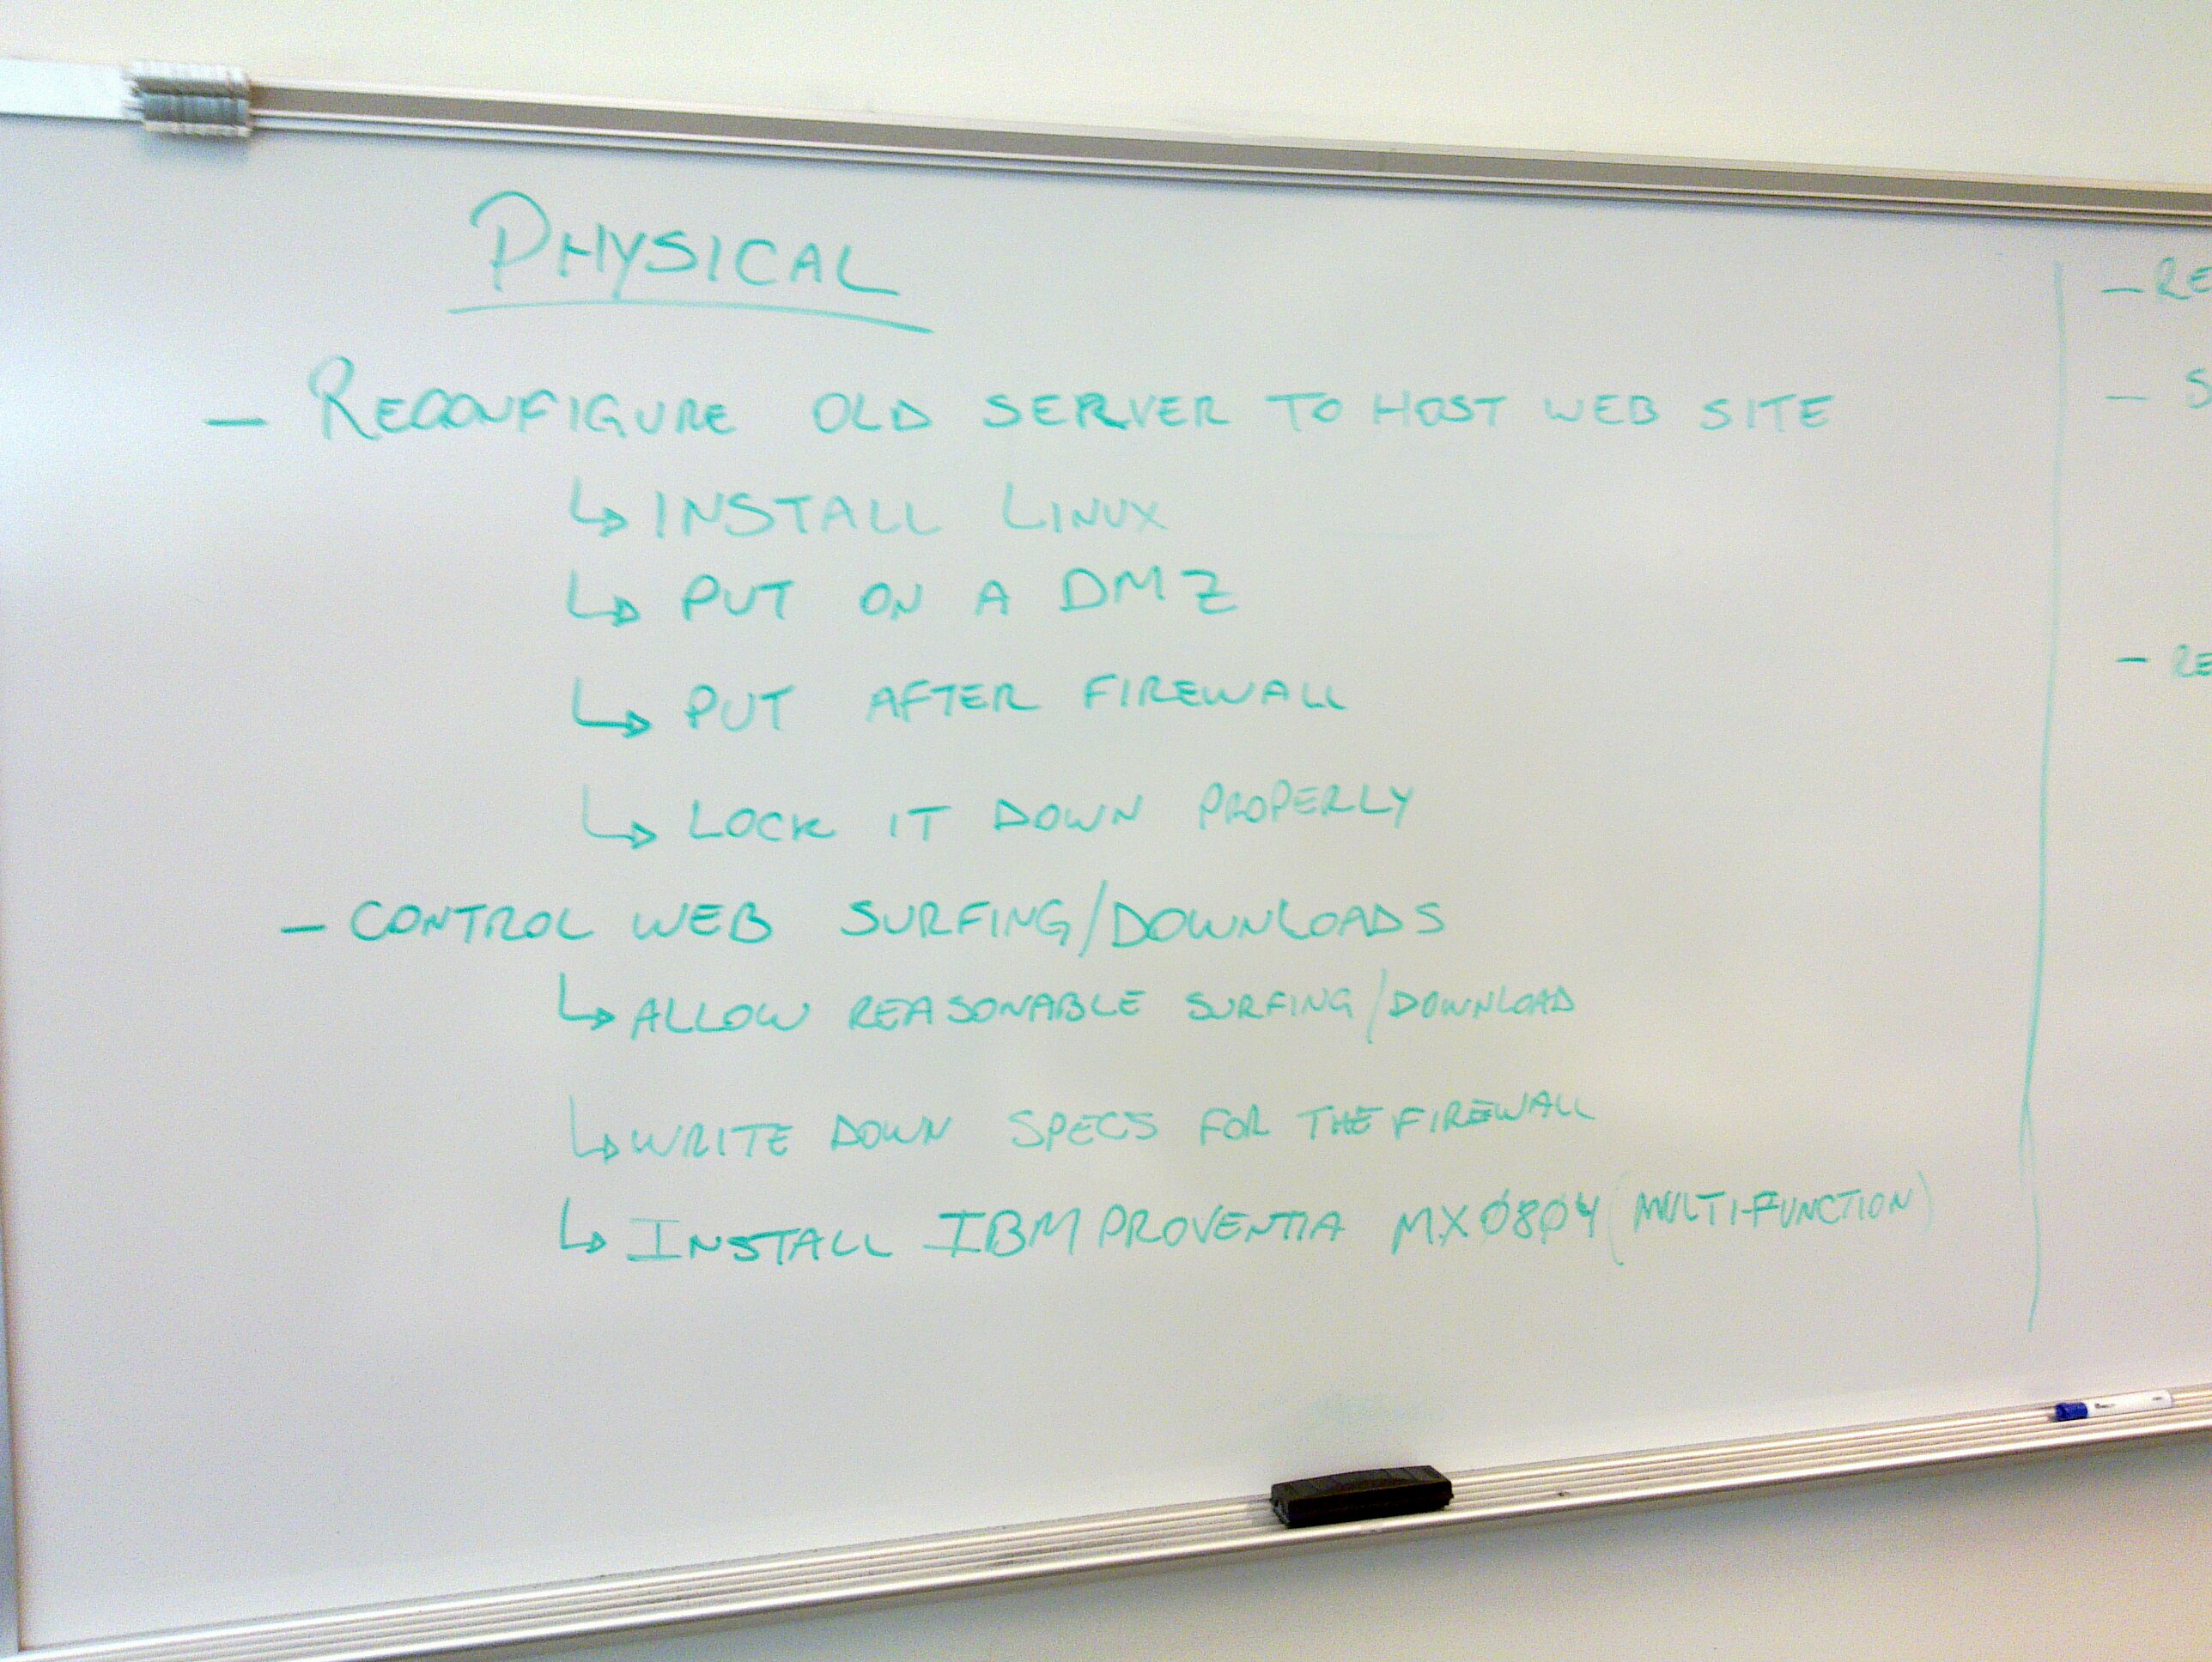 PHYSICAL
— RECONFIGURE OLD SERVER TO HOST WEB SITE
↳ INSTALL LINUX
↳ PUT ON A DMZ
↳ PUT AFTER FIREWALL
↳ LOCK IT DOWN PROPERLY
— CONTROL WEB SURFING/DOWNLOADS
↳ ALLOW REASONABLE SURFING/DOWNLOAD
↳ WRITE DOWN SPECS FOR THE FIREWALL
↳ INSTALL IBM PROVENTIA MX0804 (MULTI-FUNCTION)
— RE
— S
— RE